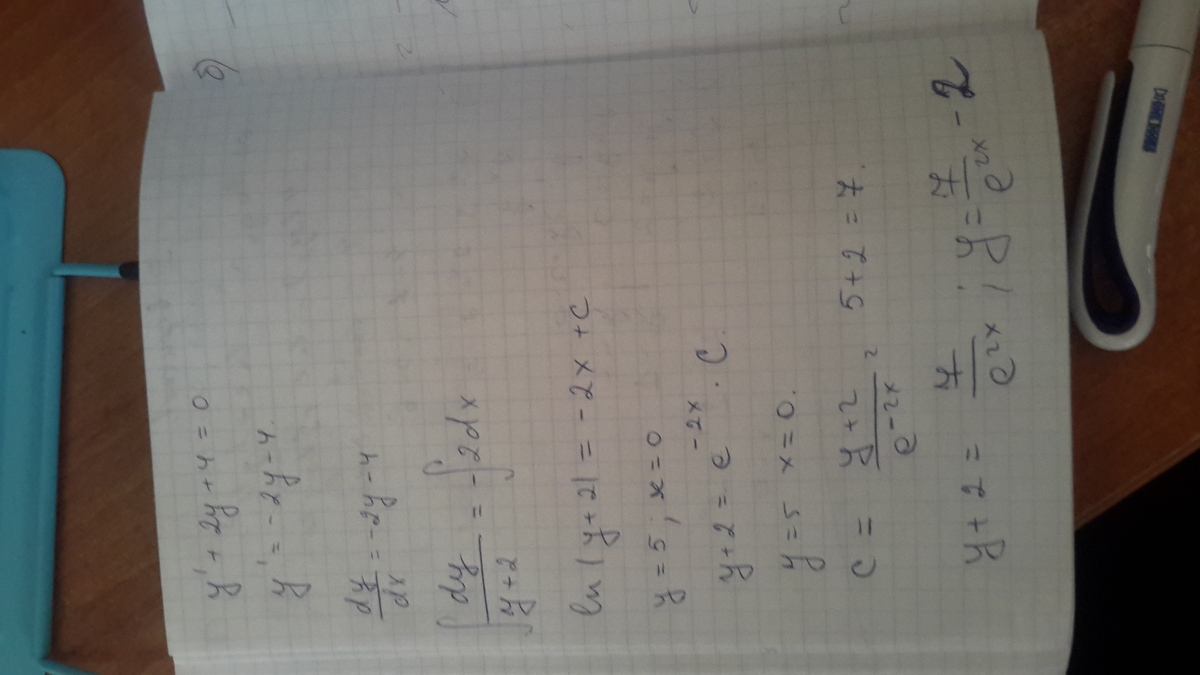 б)
y' + 2y + 4 = 0
y' = -2y - 4.
dy/dx = -2y - 4
∫ dy/(y+2) = -∫ 2dx
ln |y+2| = -2x + c
y = 5 ; x = 0
y+2 = e^(-2x) · C.
y = 5 x = 0.
C = (y+2)/e^(-2x) = 5+2 = 7.
y + 2 = 7/e^(2x) ; y = 7/e^(2x) - 2